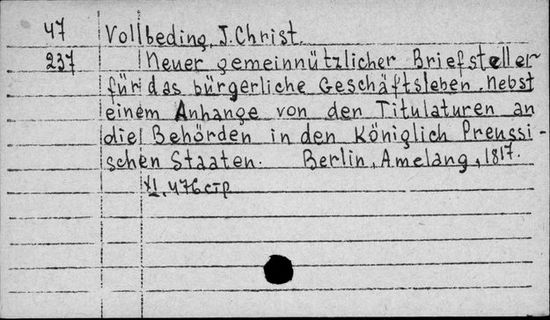 47 Vollbeding, J. Christ.
237 Neuer gemeinnützlicher Briefsteller
für das bürgerliche Geschäftsleben. Nebst
einem Anhange von den Titulaturen an
die Behörden in den Königlich Preussi-
schen Staaten. Berlin, Amelang, 1817.
XI, 476 стр